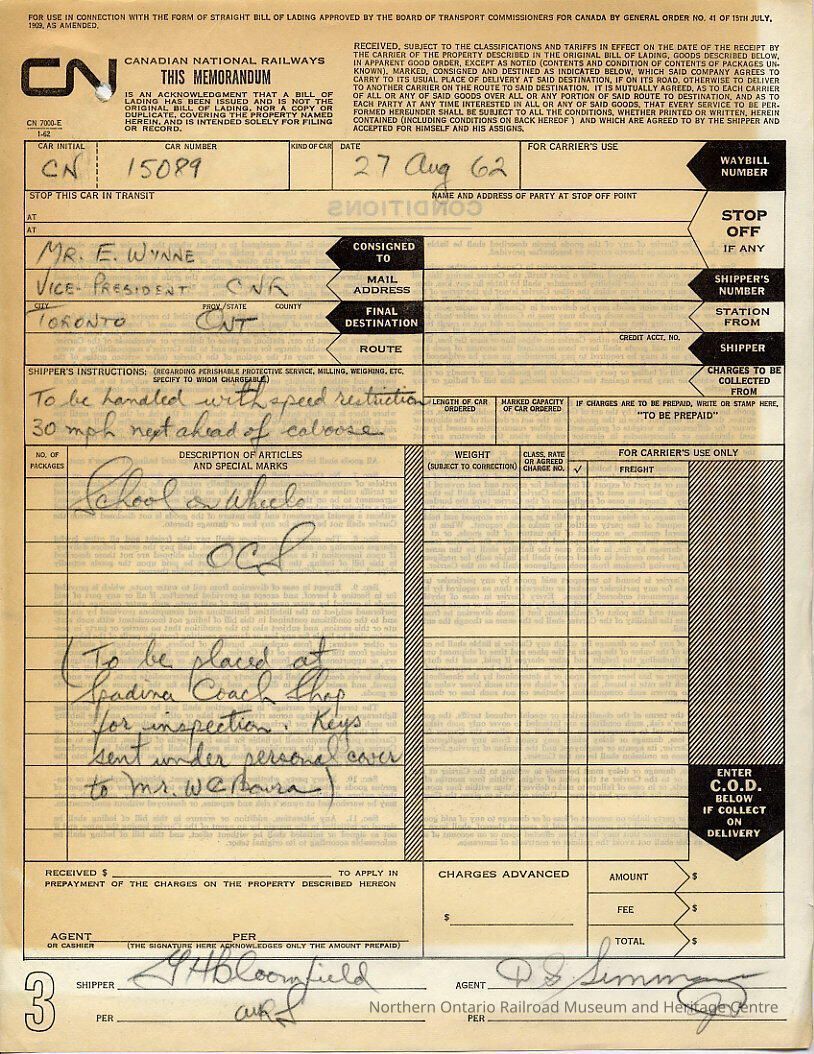 FOR USE IN CONNECTION WITH THE FORM OF STRAIGHT BILL OF LADING APPROVED BY THE BOARD OF TRANSPORT COMMISSIONERS FOR CANADA BY GENERAL ORDER NO. 41 OF 15TH JULY,
1909, AS AMENDED.
CN
CANADIAN NATIONAL RAILWAYS
THIS MEMORANDUM
IS AN ACKNOWLEDGMENT THAT A BILL OF
LADING HAS BEEN ISSUED AND IS NOT THE
ORIGINAL BILL OF LADING, NOR A COPY OR
DUPLICATE, COVERING THE PROPERTY NAMED
HEREIN, AND IS INTENDED SOLELY FOR FILING
OR RECORD.
CN 7000-E
1-62
RECEIVED, SUBJECT TO THE CLASSIFICATIONS AND TARIFFS IN EFFECT ON THE DATE OF THE RECEIPT BY
THE CARRIER OF THE PROPERTY DESCRIBED IN THE ORIGINAL BILL OF LADING, GOODS DESCRIBED BELOW,
IN APPARENT GOOD ORDER, EXCEPT AS NOTED (CONTENTS AND CONDITION OF CONTENTS OF PACKAGES UN-
KNOWN). MARKED, CONSIGNED AND DESTINED AS INDICATED BELOW, WHICH SAID COMPANY AGREES TO
CARRY TO ITS USUAL PLACE OF DELIVERY AT SAID DESTINATION, IF ON ITS ROAD, OTHERWISE TO DELIVER
TO ANOTHER CARRIER ON THE ROUTE TO SAID DESTINATION. IT IS MUTUALLY AGREED, AS TO EACH CARRIER
OF ALL OR ANY OF SAID GOODS OVER ALL OR ANY PORTION OF SAID ROUTE TO DESTINATION, AND AS TO
EACH PARTY AT ANY TIME INTERESTED IN ALL OR ANY OF SAID GOODS, THAT EVERY SERVICE TO BE PER-
FORMED HEREUNDER SHALL BE SUBJECT TO ALL THE CONDITIONS, WHETHER PRINTED OR WRITTEN, HEREIN
CONTAINED (INCLUDING CONDITIONS ON BACK HEREOF) AND WHICH ARE AGREED TO BY THE SHIPPER AND
ACCEPTED FOR HIMSELF AND HIS ASSIGNS.
CAR INITIAL CAR NUMBER KIND OF CAR DATE FOR CARRIER'S USE
CN 15089 27 Aug 62
WAYBILL
NUMBER
STOP THIS CAR IN TRANSIT NAME AND ADDRESS OF PARTY AT STOP OFF POINT
AT
AT
STOP
OFF
IF ANY
MR. E. WYNNE CONSIGNED
TO
VICE-PRESIDENT CNR MAIL
ADDRESS
SHIPPER'S
NUMBER
CITY PROV/STATE COUNTY
TORONTO ONT FINAL
DESTINATION
STATION
FROM
ROUTE
CREDIT ACCT. NO.
SHIPPER
SHIPPER'S INSTRUCTIONS: (REGARDING PERISHABLE PROTECTIVE SERVICE, MILLING, WEIGHING, ETC.
SPECIFY TO WHOM CHARGEABLE)
CHARGES TO BE
COLLECTED
FROM
To be handled with speed restriction
30 mph next ahead of caboose
LENGTH OF CAR
ORDERED
MARKED CAPACITY
OF CAR ORDERED
IF CHARGES ARE TO BE PREPAID, WRITE OR STAMP HERE,
"TO BE PREPAID"
NO. OF
PACKAGES
DESCRIPTION OF ARTICLES
AND SPECIAL MARKS
WEIGHT
(SUBJECT TO CORRECTION)
CLASS, RATE
OR AGREED
CHARGE NO.
FOR CARRIER'S USE ONLY
✓ FREIGHT
School on Wheels
OCS
(To be placed at
Spadina Coach Shop
for inspection. Keys
sent under personal cover
to Mr. W C )
ENTER
C.O.D.
BELOW
IF COLLECT
ON
DELIVERY
RECEIVED $ TO APPLY IN
PREPAYMENT OF THE CHARGES ON THE PROPERTY DESCRIBED HEREON
CHARGES ADVANCED
$
AMOUNT $
FEE $
TOTAL $
AGENT PER
OR CASHIER (THE SIGNATURE HERE ACKNOWLEDGES ONLY THE AMOUNT PREPAID)
3
SHIPPER G H Bloomfield AGENT
PER PER
Northern Ontario Railroad Museum and Heritage Centre